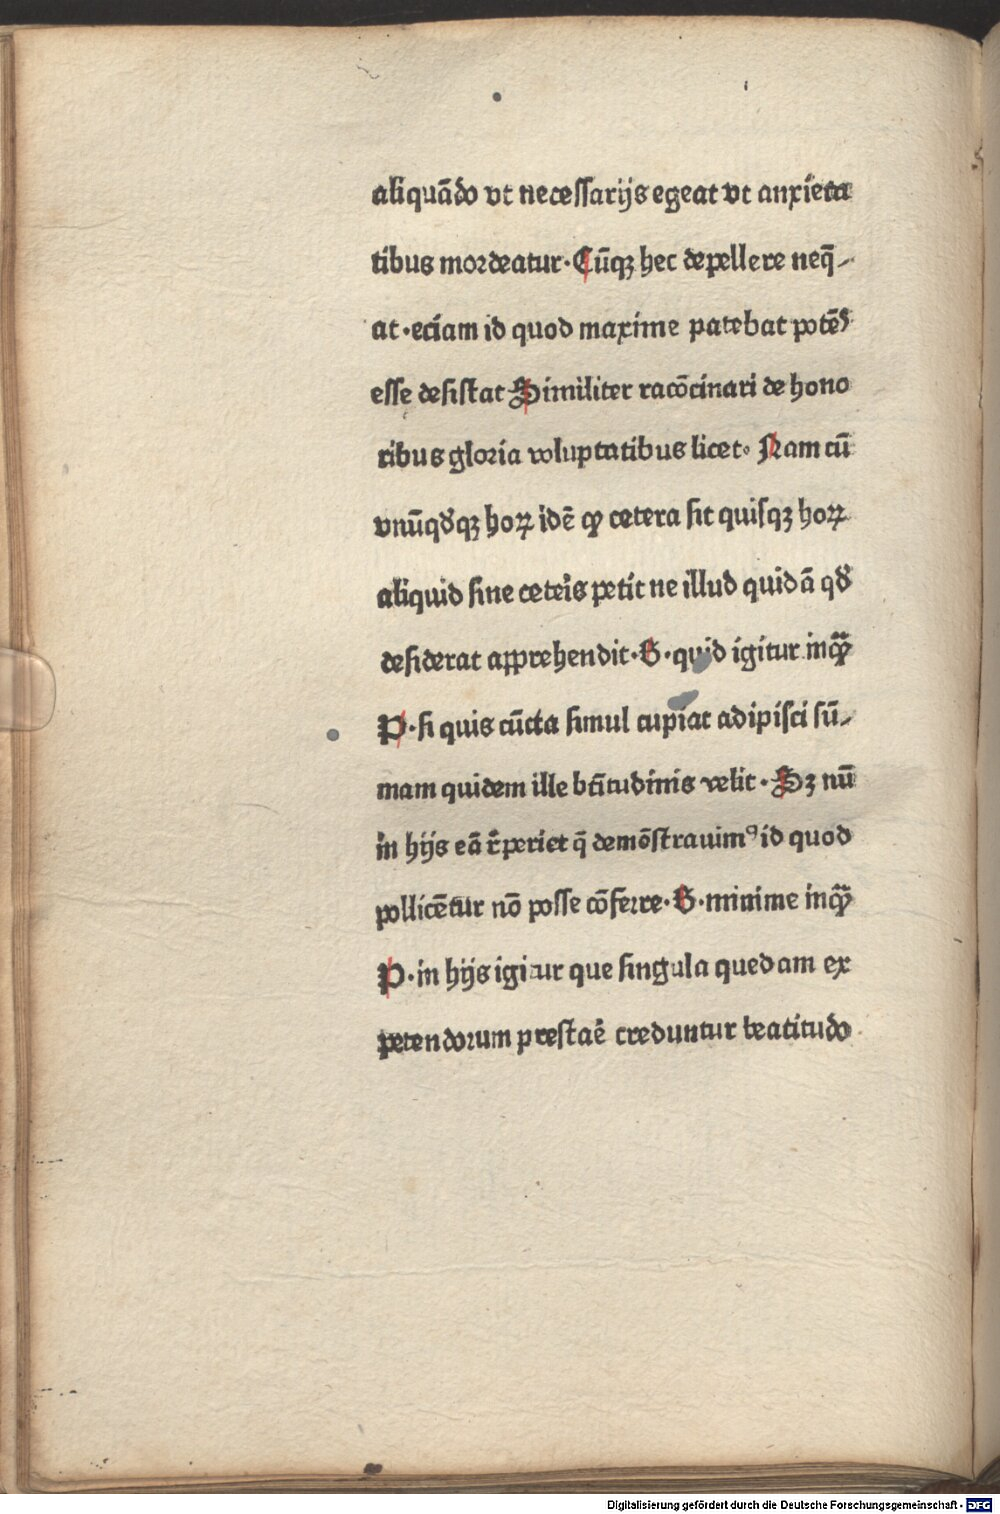 aliquādo vt necessarijs egeat vt anxieta
tibus mordeatur·Cūqꝫ hec depellere neq̄-
at·eciam id quod maxime patebat potēs
esse desistat Similiter racōcinari de hono
ribus gloria voluptatibus licet· Nam cū
vnūqd̛qꝫ hoꝝ idē ꝙ cetera sit quisqꝫ hoꝝ
aliquid sine ceteris petit ne illud quidā qd̛
desiderat apprehendit·B·quid igitur inqͣꝫ
P·si quis cūcta simul cupiat adipisci sū-
mam quidem ille bt̄itudinis velit·Sꝫ nū
in hijs eā rꝑeriet q̄ demōstrauimꝰ id quod
pollicētur nō posse cōferre·B·minime inqͣꝫ
P·in hijs igitur que singula quedam ex
petendorum prestaē creduntur beatitudo
Digitalisierung gefördert durch die Deutsche Forschungsgemeinschaft - DFG